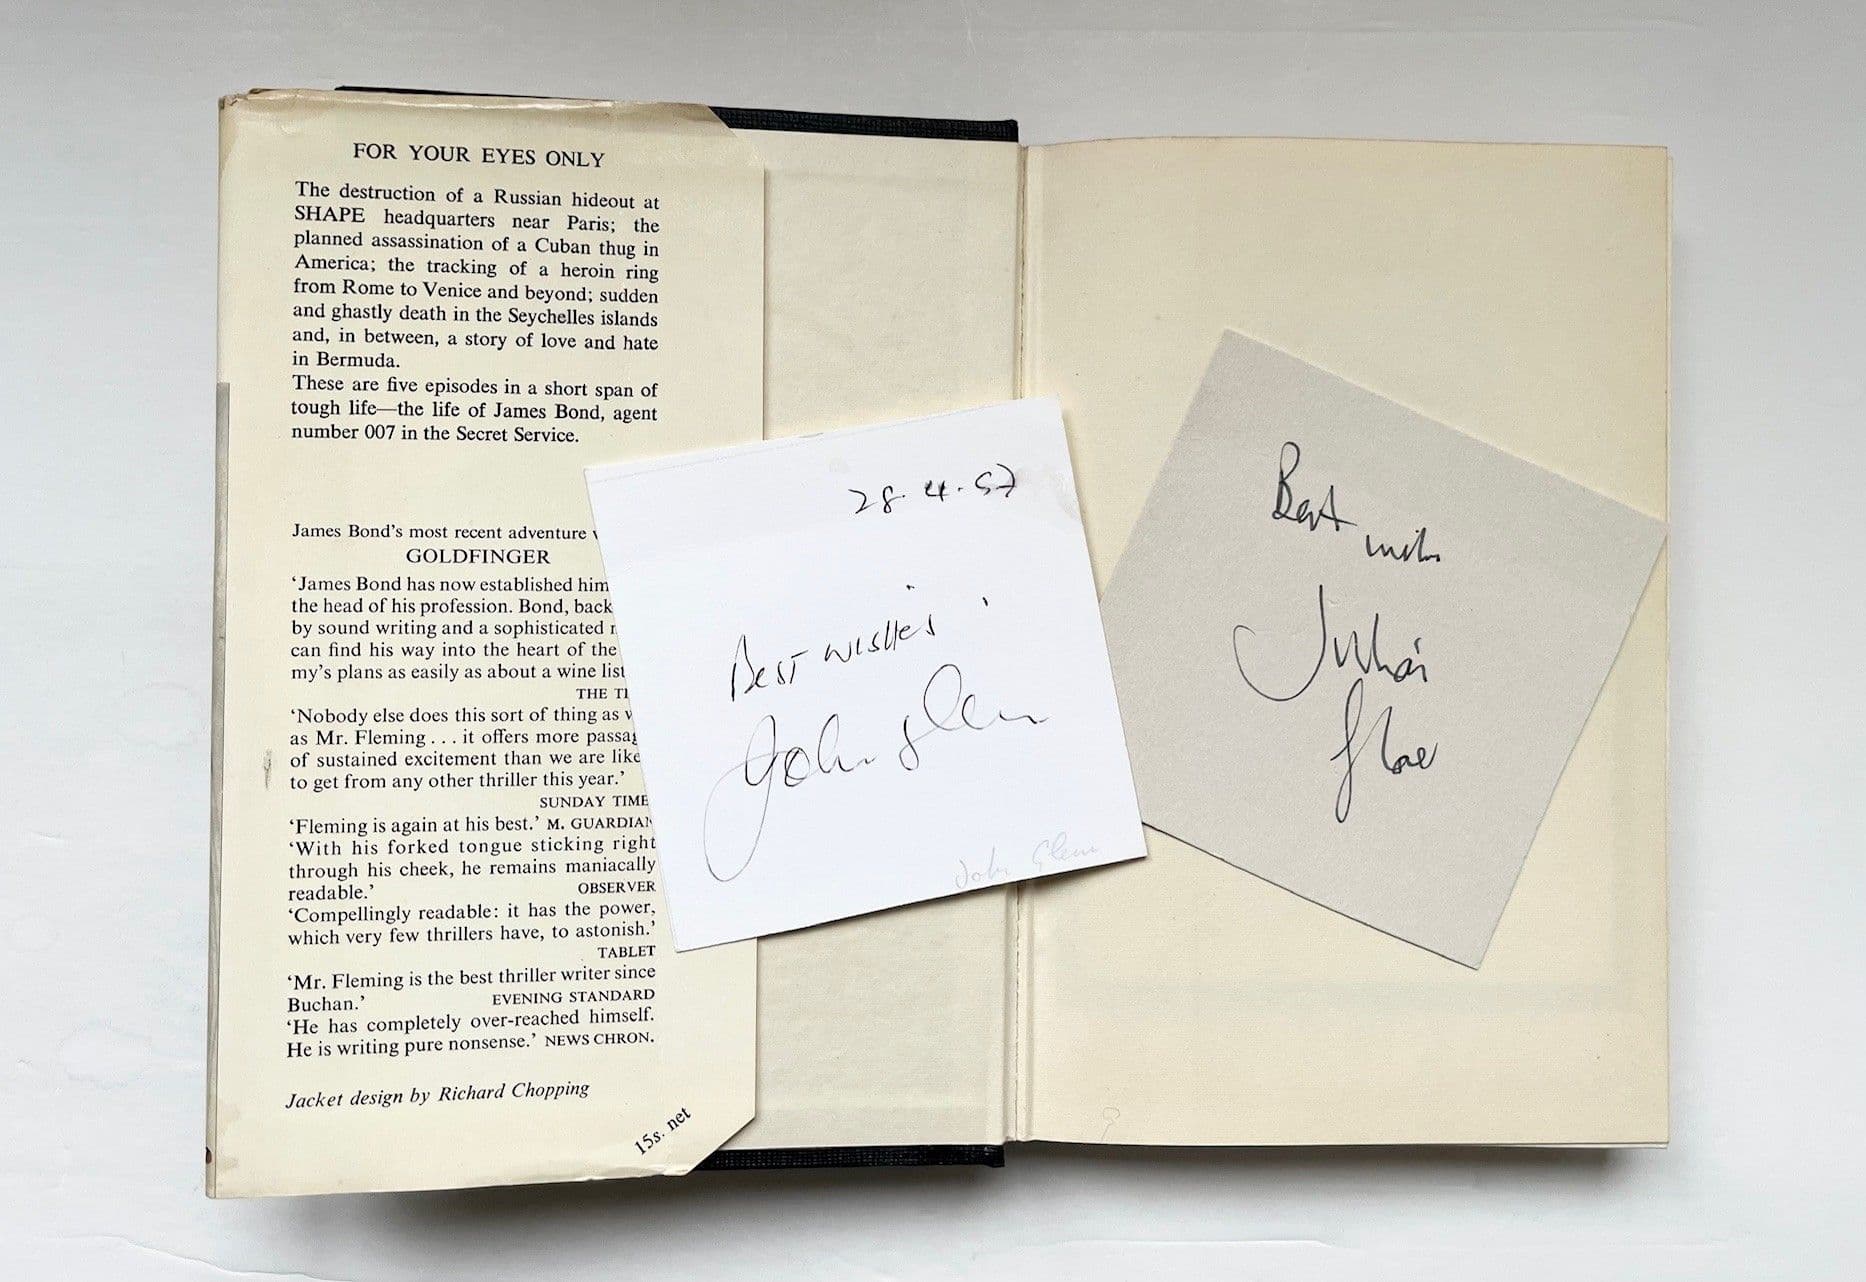 FOR YOUR EYES ONLY
The destruction of a Russian hideout at
SHAPE headquarters near Paris; the
planned assassination of a Cuban thug in
America; the tracking of a heroin ring
from Rome to Venice and beyond; sudden
and ghastly death in the Seychelles islands
and, in between, a story of love and hate
in Bermuda.
These are five episodes in a short span of
tough life—the life of James Bond, agent
number 007 in the Secret Service.
James Bond's most recent adventure
GOLDFINGER
‘James Bond has now established him
the head of his profession. Bond, back
by sound writing and a sophisticated
can find his way into the heart of the
my's plans as easily as about a wine list
THE
‘Nobody else does this sort of thing as
as Mr. Fleming . . . it offers more passag
of sustained excitement than we are like
to get from any other thriller this year.’
SUNDAY TIME
‘Fleming is again at his best.’ M. GUARDIAN
‘With his forked tongue sticking right
through his cheek, he remains maniacally
readable.’ OBSERVER
‘Compellingly readable: it has the power,
which very few thrillers have, to astonish.’
TABLET
‘Mr. Fleming is the best thriller writer since
Buchan.’ EVENING STANDARD
‘He has completely over-reached himself.
He is writing pure nonsense.’ NEWS CHRON.
Jacket design by Richard Chopping
15s. net
28.4.87
Best wishes
John Glen
John Glen
Best wishes
Julian
Glover